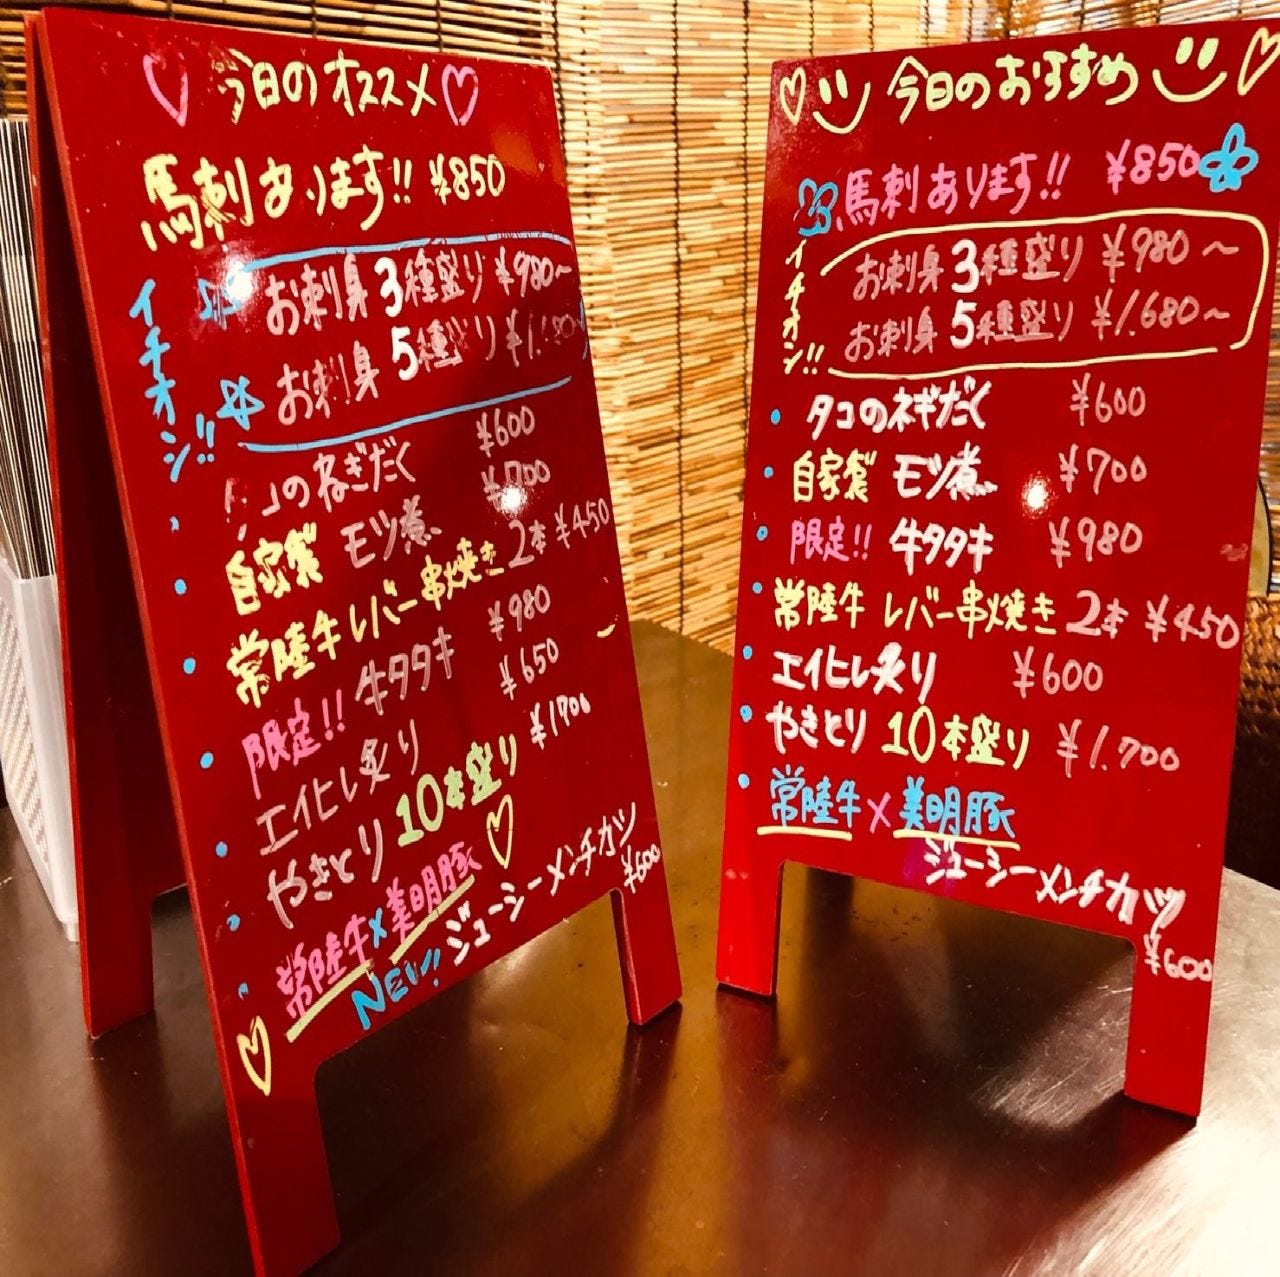 今日のオススメ
馬刺あります!! ¥850
イチオシ!!
お刺身 3種盛り ¥980~
お刺身 5種盛り ¥1.680
タコのねぎだく ¥600
自家製 モツ煮 ¥700
常陸牛 レバー串焼き 2本 ¥450
限定!! 牛タタキ ¥980
エイヒレ炙り ¥650
やきとり 10本盛り ¥1700
常陸牛×美明豚
NEW! ジューシーメンチカツ
¥600
今日のおすすめ
馬刺あります!! ¥850
イチオシ!!
お刺身 3種盛り ¥980~
お刺身 5種盛り ¥1.680~
タコのネギだく ¥600
自家製 モツ煮 ¥700
限定!! 牛タタキ ¥980
常陸牛 レバー串焼き 2本 ¥450
エイヒレ炙り ¥600
やきとり 10本盛り ¥1.700
常陸牛×美明豚
ジューシーメンチカツ
¥600